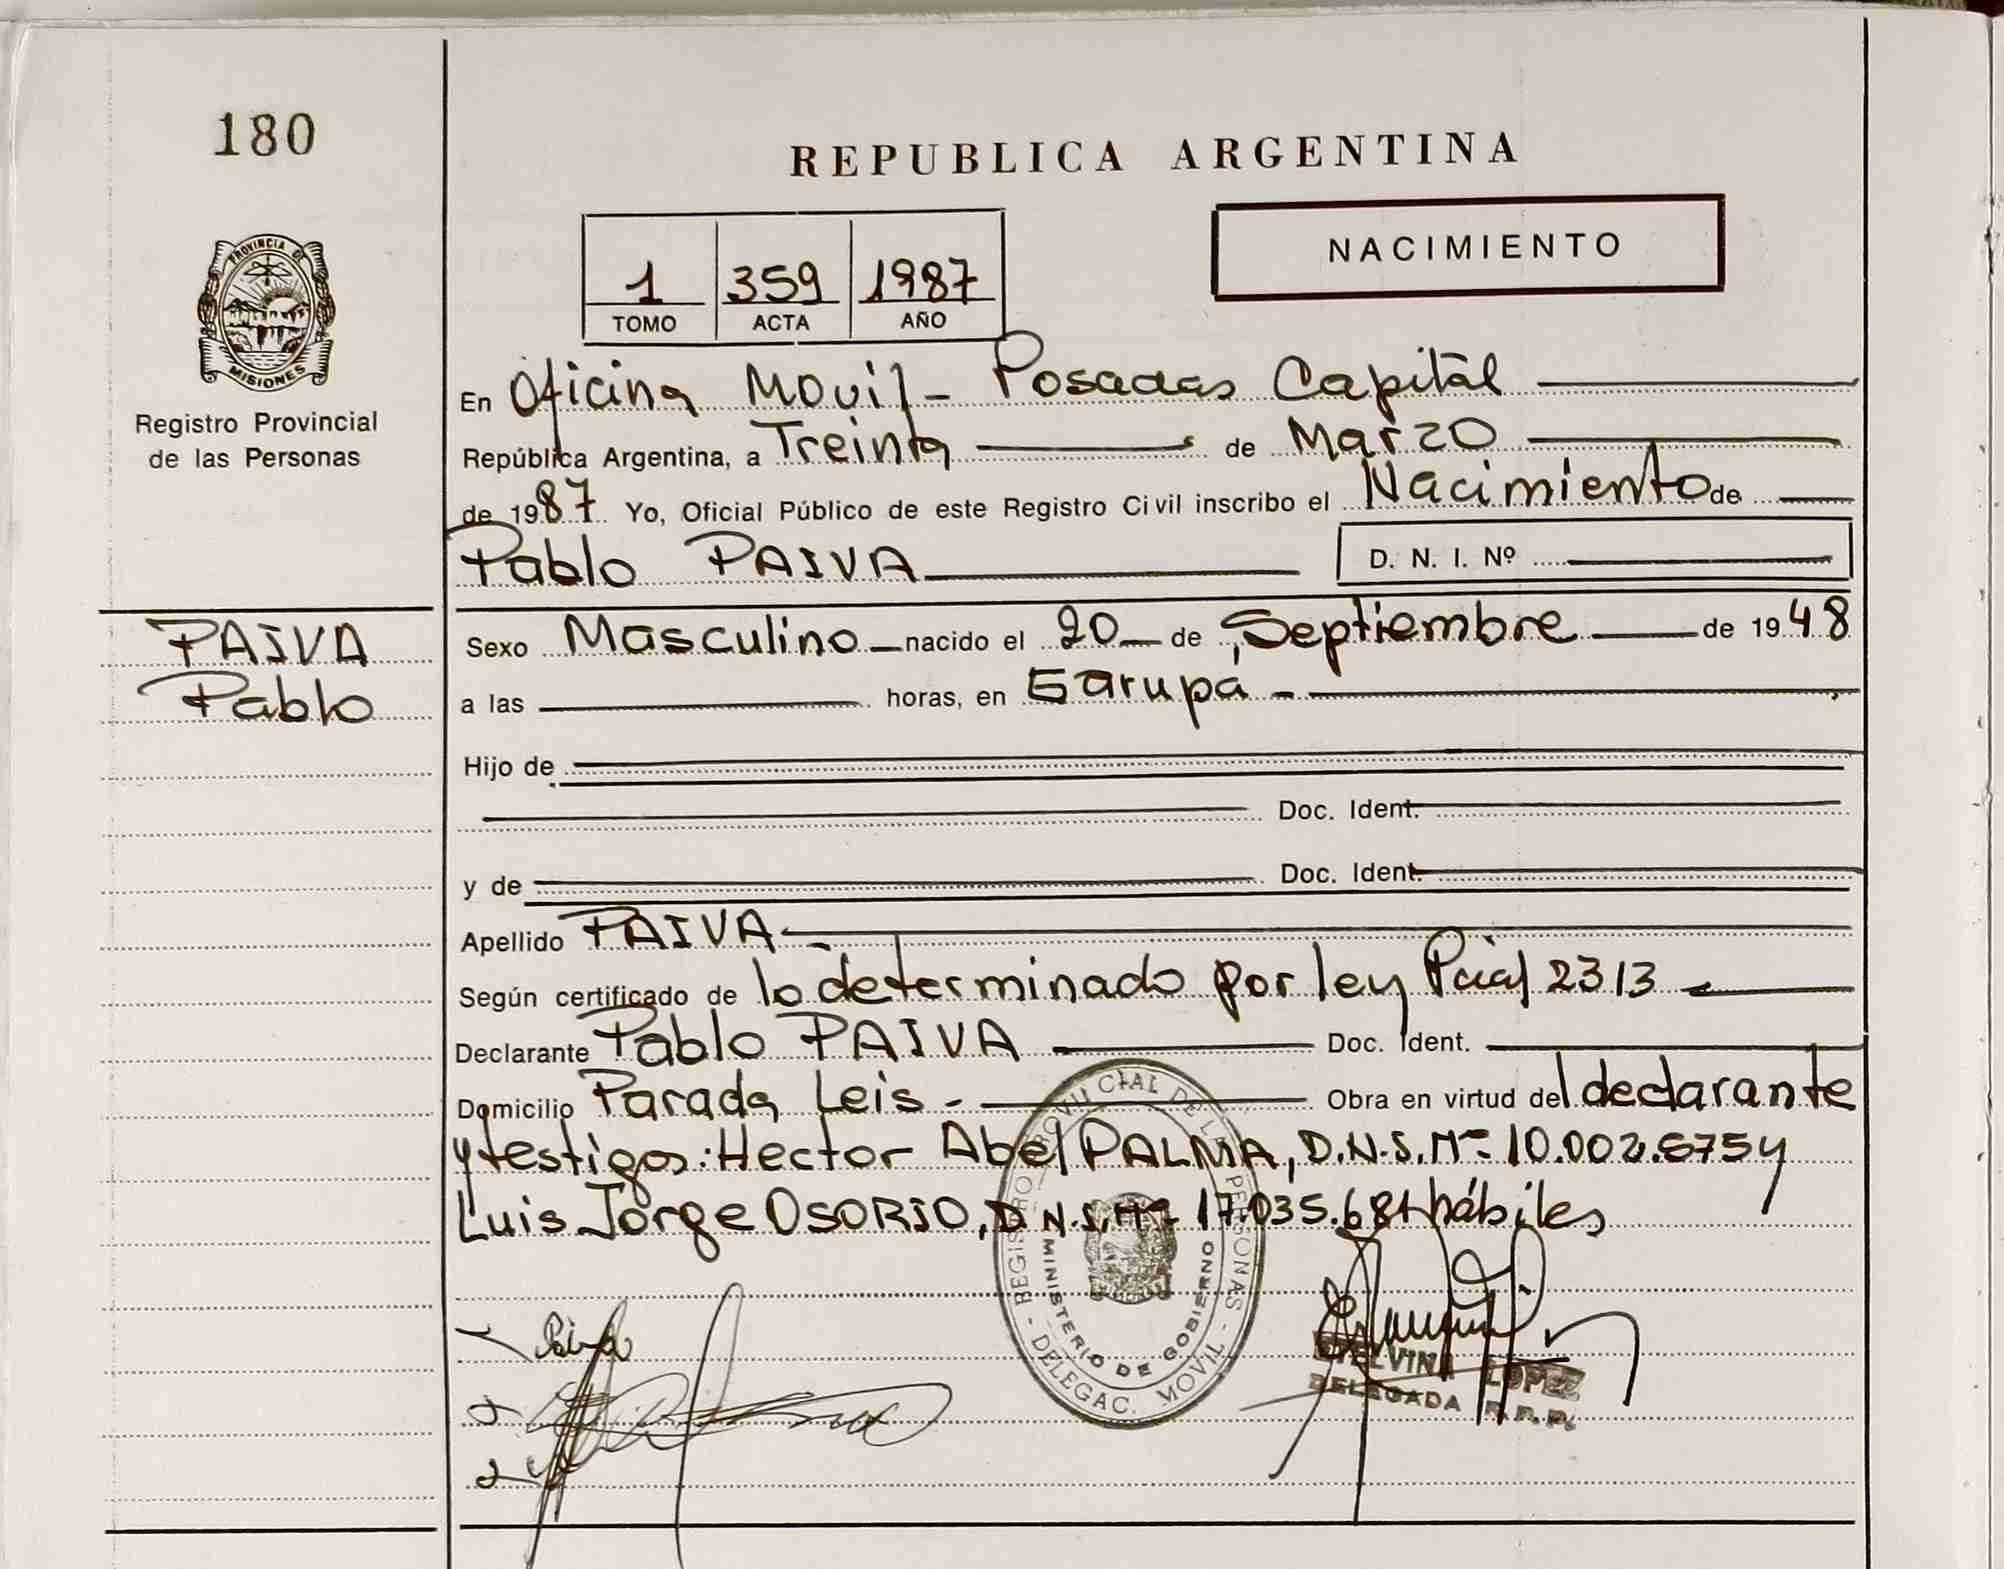 180
REPUBLICA ARGENTINA
NACIMIENTO
1 359 1987
TOMO ACTA AÑO
PROVINCIA DE
MISIONES
Registro Provincial
de las Personas
En Oficina Movil - Posadas Capital
República Argentina, a Treinta de Marzo
de 1987 Yo, Oficial Público de este Registro Civil inscribo el Nacimiento de
Pablo PAIVA D. N. I. Nº
PAIVA
Pablo
Sexo Masculino nacido el 20 de Septiembre de 1948
a las horas, en Garupá
Hijo de
Doc. Ident.
y de Doc. Ident.
Apellido PAIVA
Según certificado de lo determinado por ley Pcial 2313
Declarante Pablo PAIVA Doc. Ident.
Domicilio Parada Leis - Obra en virtud del declarante
y testigos: Hector Abel PALMA, D.N.I. Nº 10.002.675 y
Luis Jorge OSORIO, D.N.I. Nº 17.035.681 hábiles
REGISTRO PROVINCIAL DE LAS PERSONAS - DELEGAC. MOVIL -
MINISTERIO DE GOBIERNO
Paiva
ETELVINA LOPEZ
DELEGADA R.P.P.